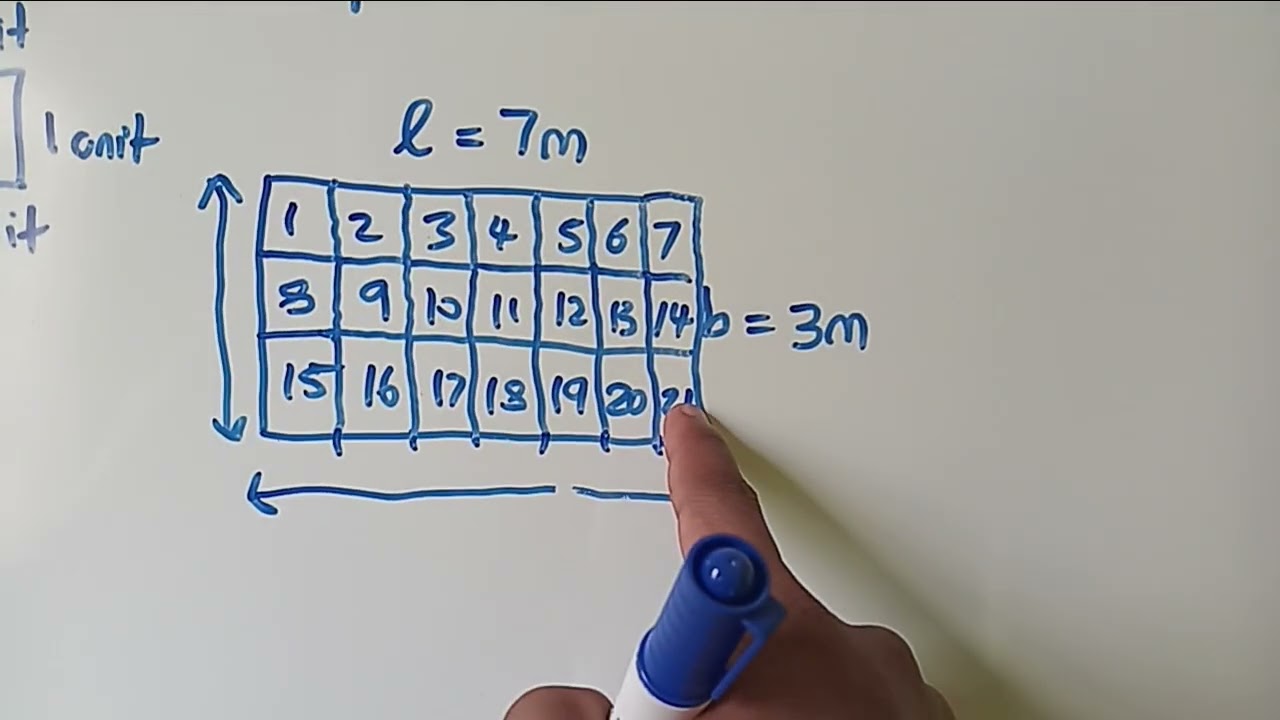 it
1 unit
it
l = 7m
1 2 3 4 5 6 7
8 9 10 11 12 13 14
b = 3m
15 16 17 18 19 20 21